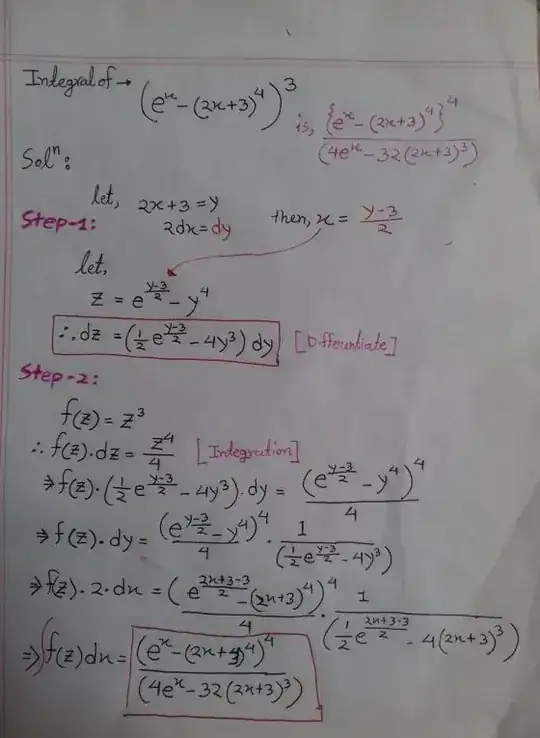 Integral of → (e^x - (2x+3)^4)^3 is, {e^x - (2x+3)^4}^4 / (4e^x - 32(2x+3)^3)
Sol^n:
let, 2x+3 = y
Step-1: 2dx = dy then, x = (y-3)/2
let,
z = e^((y-3)/2) - y^4
∴ dz = (1/2 e^((y-3)/2) - 4y^3) dy [Differentiate]
Step-2:
f(z) = z^3
∴ f(z).dz = z^4/4 [Integration]
⇒ f(z).(1/2 e^((y-3)/2) - 4y^3).dy = (e^((y-3)/2) - y^4)^4 / 4
⇒ f(z).dy = (e^((y-3)/2) - y^4)^4 / 4 . 1 / (1/2 e^((y-3)/2) - 4y^3)
⇒ f(z).2.dx = (e^((2x+3-3)/2) - (2x+3)^4)^4 / 4 . 1 / (1/2 e^((2x+3-3)/2) - 4(2x+3)^3)
⇒ ∫f(z)dx = (e^x - (2x+3)^4)^4 / (4e^x - 32(2x+3)^3)